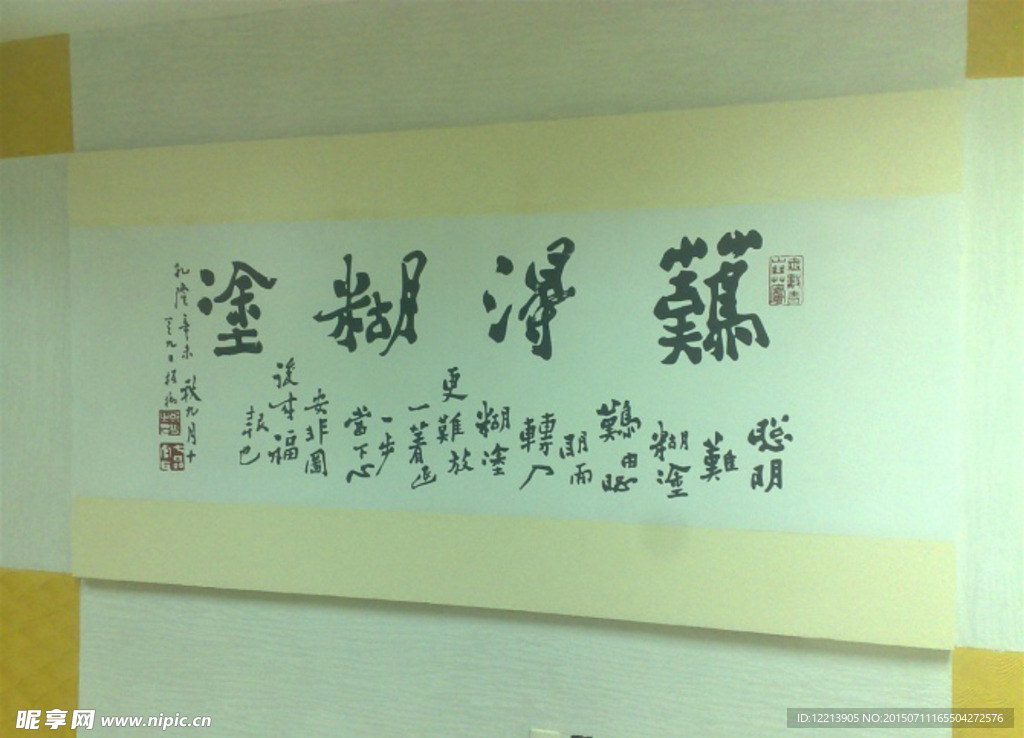 難得糊塗
聰明
難
糊塗
難由聰
明而
轉入
糊塗
更難放
一著退
一步
當下心
安非圖
後来福
報也
乾隆辛未秋九月十
九日板橋
昵享网 www.nipic.cn
ID:12213905 NO:20150711165504272576